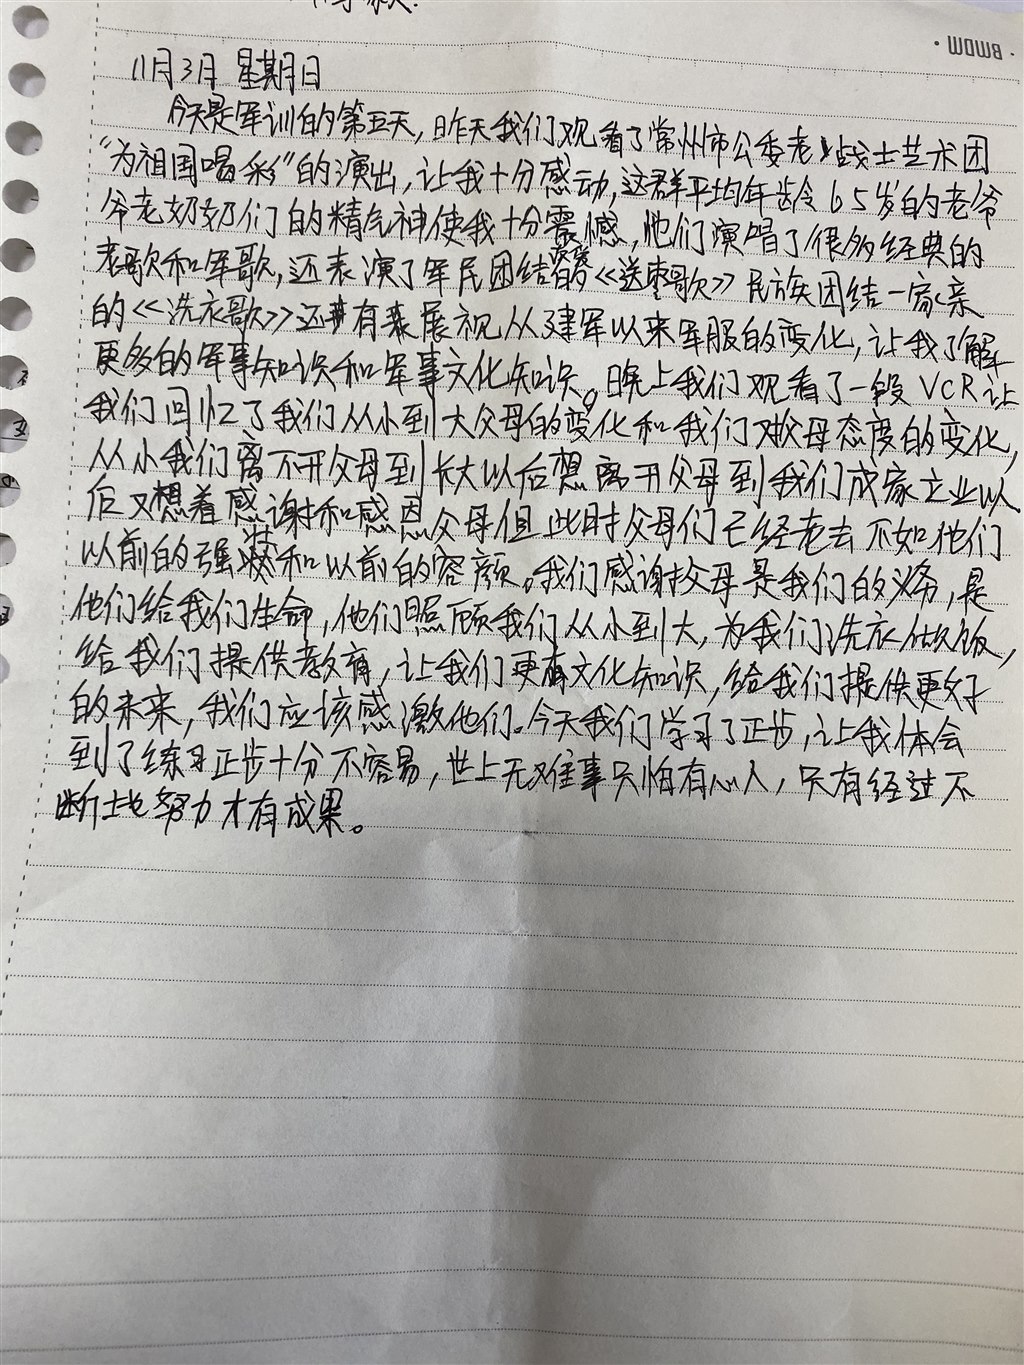 WOWB
11月3月 星期日
今天是军训的第五天,昨天我们观看了常州市公委老战士艺术团
“为祖国喝彩”的演出,让我十分感动,这群平均年龄65岁的老爷
爷老奶奶们的精气神使我十分震憾,他们演唱了很多经典的
老歌和军歌,还表演了军民团结《送枣歌》民族团结一家亲
的《洗衣歌》还有展视从建军以来军服的变化,让我了解
更多的军事知识和军事文化知识。晚上我们观看了一段VCR让
我们回忆了我们从小到大父母的变化和我们对父母态度的变化,
从小我们离不开父母到长大以后想离开父母到我们成家立业以
后又想着感谢和感恩父母但此时父母们已经老去不如他们
以前的强壮和以前的容颜。我们感谢父母是我们的义务,是
他们给我们生命,他们照顾我们从小到大,为我们洗衣做饭,
给我们提供教育,让我们更有文化知识,给我们提供更好
的未来,我们应该感激他们。今天我们学习了正步,让我体会
到了练习正步十分不容易,世上无难事只怕有心人,只有经过不
断地努力才有成果。